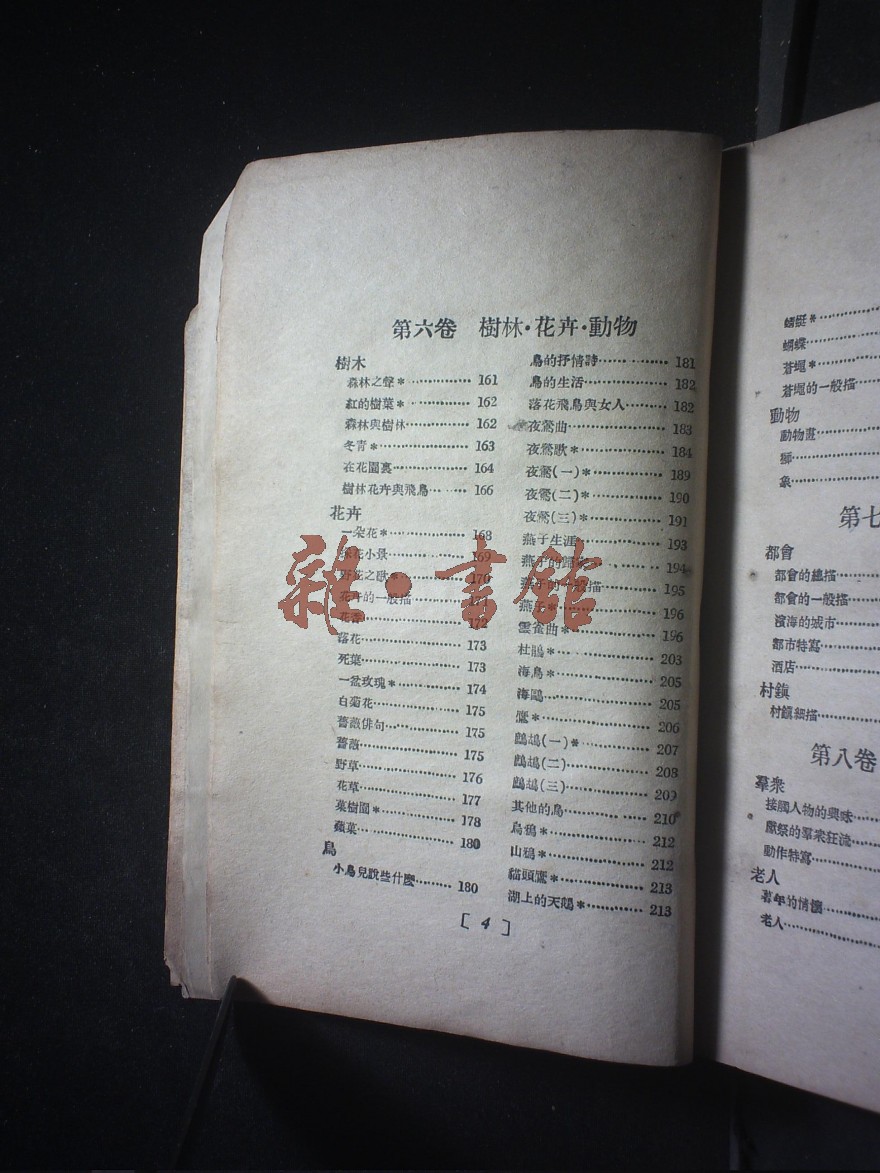 第六卷 樹林·花卉·動物
樹木
森林之聲*…………161
紅的樹葉*…………162
森林與樹林…………162
冬青*…………163
在花園裏…………164
樹林花卉與飛鳥……166
花卉
一朵花*…………168
花小景…………169
野花之歌*…………170
花卉的一般描…………171
花香…………172
落花…………173
死葉…………173
一盆玫瑰*…………174
白菊花…………175
薔薇俳句…………175
薔薇…………175
野草…………176
花草…………177
菓樹園*…………178
蘋菓…………180
鳥
小鳥兒說些什麼………180
鳥的抒情詩…………181
鳥的生活…………182
落花飛鳥與女人………182
夜鶯曲…………183
夜鶯歌*…………184
夜鶯(一)*…………189
夜鶯(二)*…………190
夜鶯(三)*…………191
燕子生涯…………193
燕子的歸…………194
燕子的一般描…………195
燕子*…………196
雲雀曲*…………196
杜鵑*…………203
海鳥*…………205
海鷗…………205
鷹*…………206
鷓鴣(一)*…………207
鷓鴣(二)…………208
鷓鴣(三)…………209
其他的鳥…………210
烏鴉*…………212
山鴉*…………212
貓頭鷹*…………213
湖上的天鵝*…………213
[4]
蜻蜓*
蝴蝶
蒼蠅*
蒼蠅的一般描
動物
動物畫
獅
象
第七
都會
都會的總描
都會的一般描
濱海的城市
都市特寫
酒店
村鎮
村鎮細描
第八卷
羣衆
接觸人物的興味
嚴祭的羣衆狂流
動作特寫
老人
暮年的情懷
老人
雜·書館